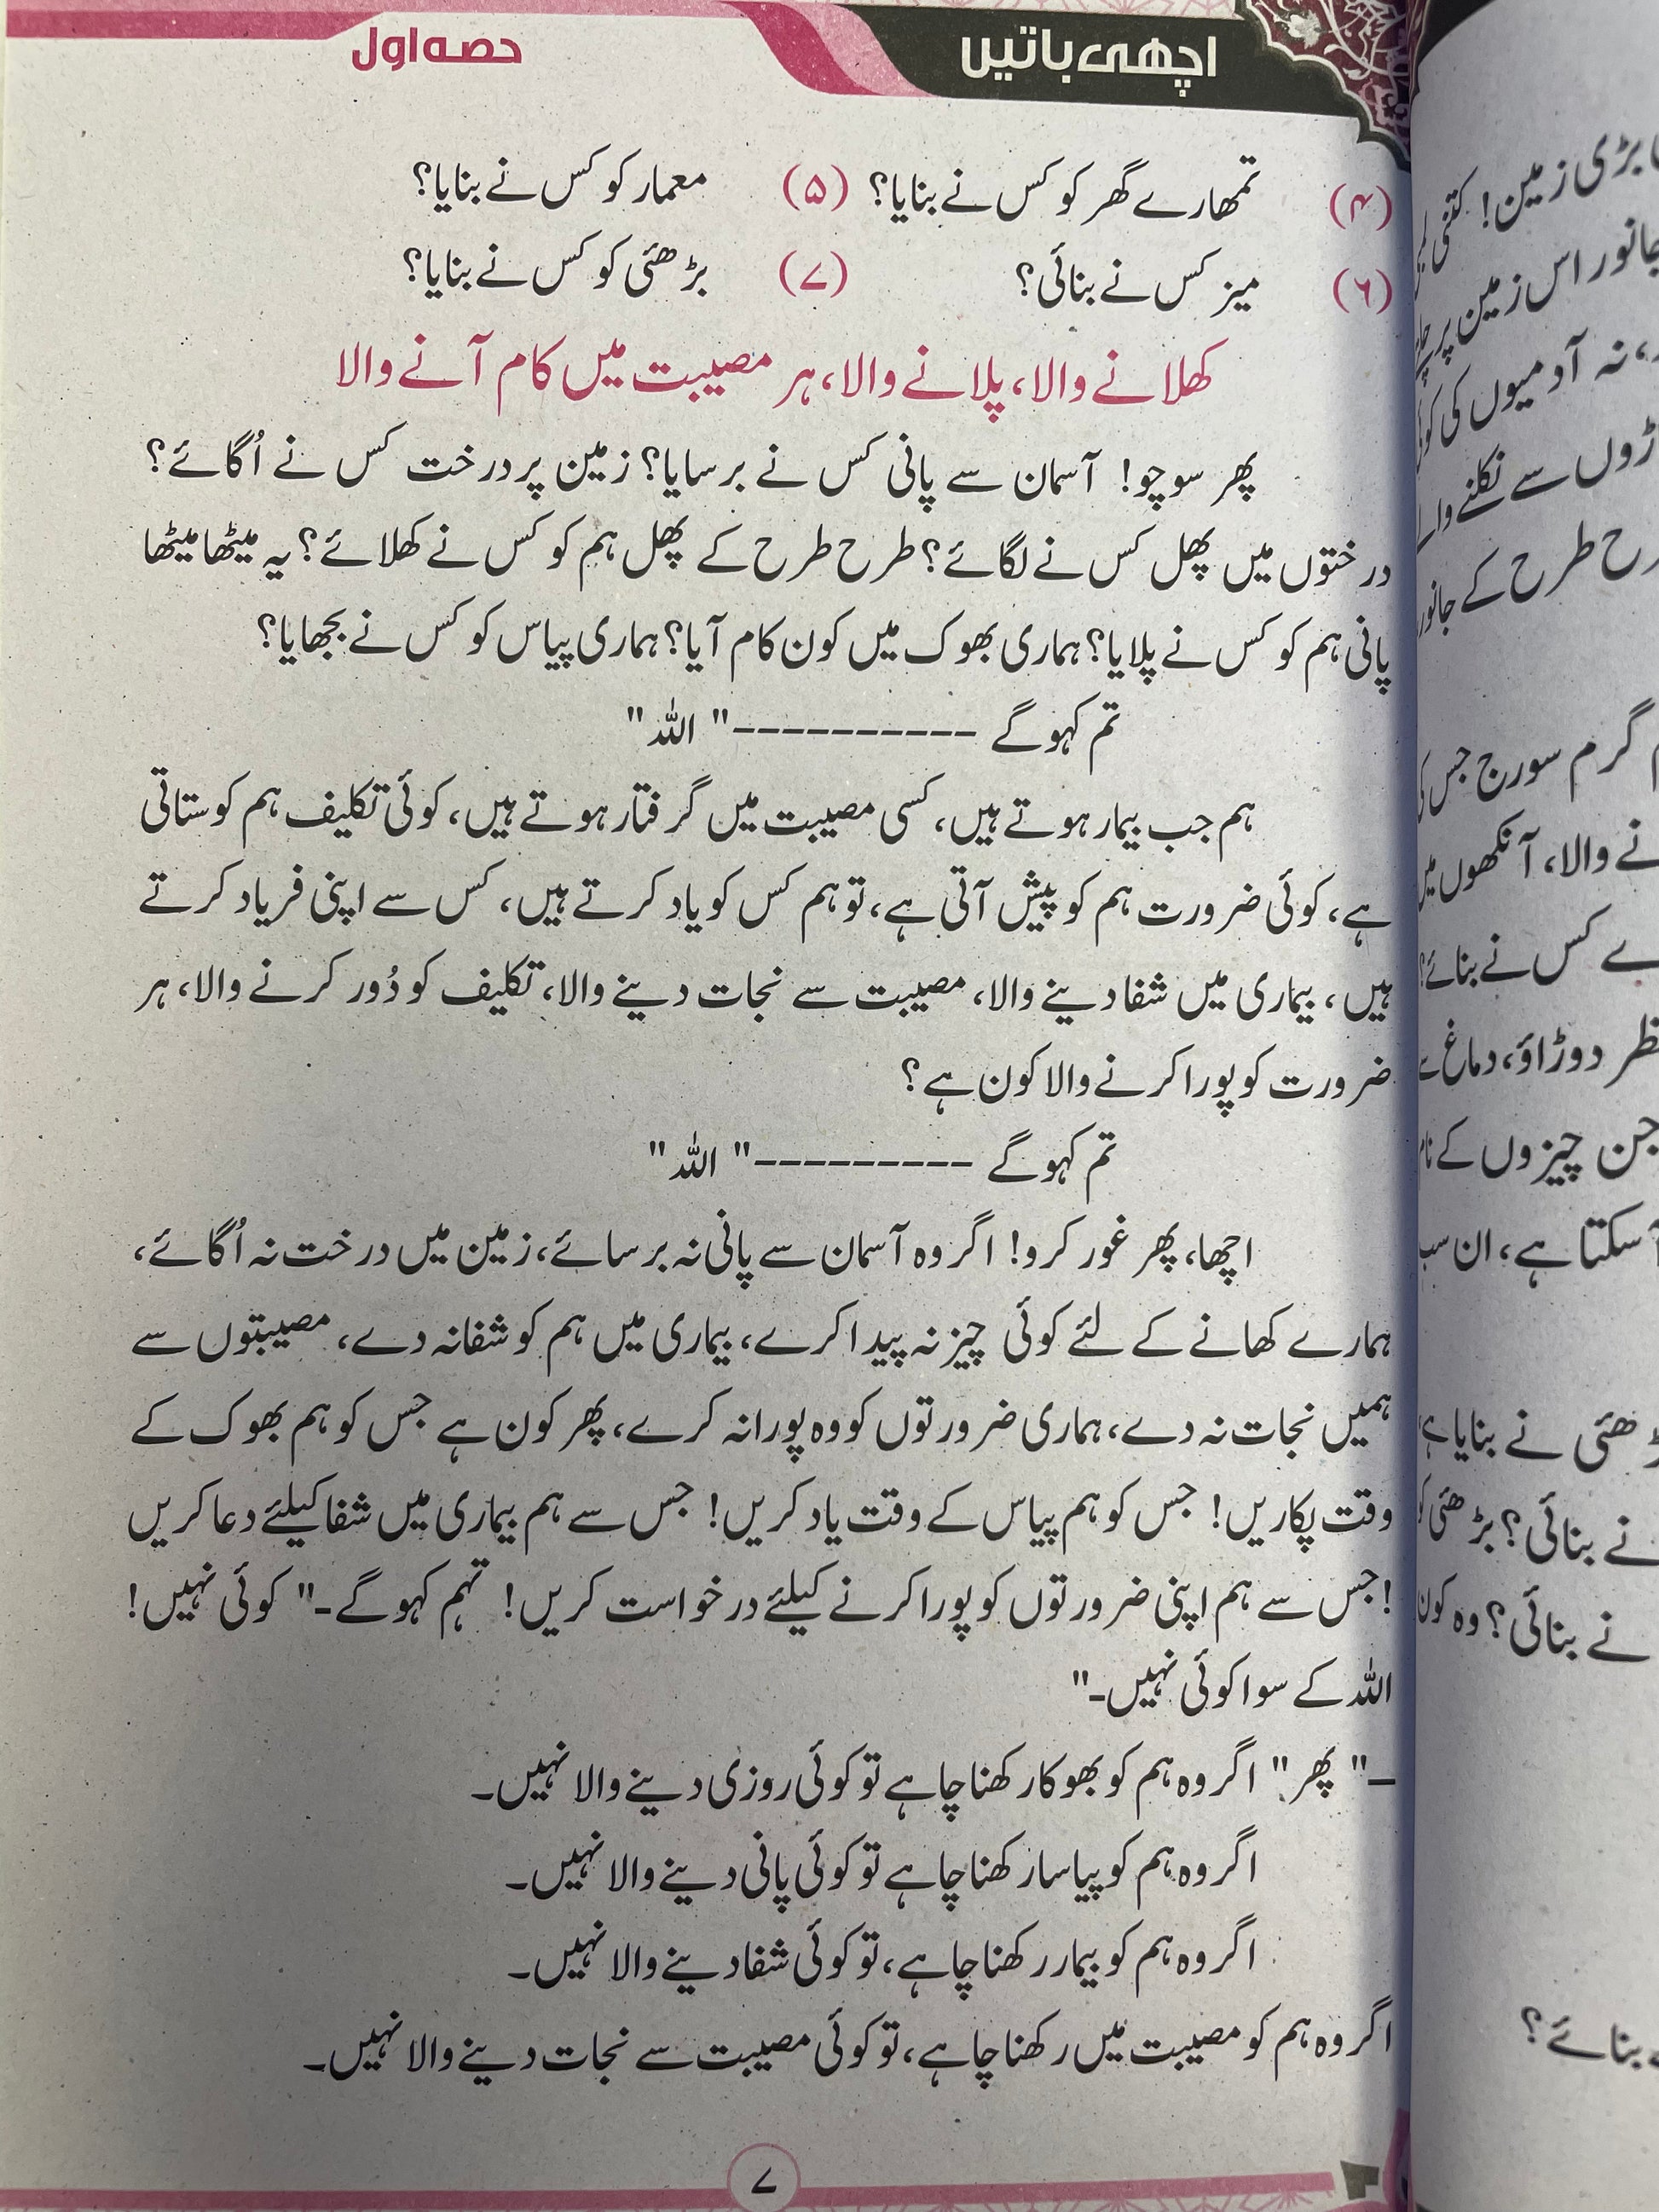 اچھی باتیں
حصہ اول
(۴) تمھارے گھر کو کس نے بنایا؟ (۵) معمار کو کس نے بنایا؟
(۶) میز کس نے بنائی؟ (۷) بڑھئی کو کس نے بنایا؟
کھلانے والا، پلانے والا، ہر مصیبت میں کام آنے والا
پھر سوچو! آسمان سے پانی کس نے برسایا؟ زمین پر درخت کس نے اُگائے؟
درختوں میں پھل کس نے لگائے؟ طرح طرح کے پھل ہم کو کس نے کھلائے؟ یہ میٹھا میٹھا
پانی ہم کو کس نے پلایا؟ ہماری بھوک میں کون کام آیا؟ ہماری پیاس کو کس نے بجھایا؟
تم کہو گے ----------" اللہ"
ہم جب بیمار ہوتے ہیں، کسی مصیبت میں گرفتار ہوتے ہیں، کوئی تکلیف ہم کو ستاتی
ہے، کوئی ضرورت ہم کو پیش آتی ہے، تو ہم کس کو یاد کرتے ہیں، کس سے اپنی فریاد کرتے
ہیں، بیماری میں شفا دینے والا، مصیبت سے نجات دینے والا، تکلیف کو دُور کرنے والا، ہر
ضرورت کو پورا کرنے والا کون ہے؟
تم کہو گے ---------" اللہ"
اچھا، پھر غور کرو! اگر وہ آسمان سے پانی نہ برسائے، زمین میں درخت نہ اُگائے،
ہمارے کھانے کے لئے کوئی چیز نہ پیدا کرے، بیماری میں ہم کو شفا نہ دے، مصیبتوں سے
ہمیں نجات نہ دے، ہماری ضرورتوں کو وہ پورا نہ کرے، پھر کون ہے جس کو ہم بھوک کے
وقت پکاریں! جس کو ہم پیاس کے وقت یاد کریں! جس سے ہم بیماری میں شفا کیلئے دعا کریں
!جس سے ہم اپنی ضرورتوں کو پورا کرنے کیلئے درخواست کریں! تہم کہو گے۔" کوئی نہیں!
اللہ کے سوا کوئی نہیں۔"
_" پھر" اگر وہ ہم کو بھوکا رکھنا چاہے تو کوئی روزی دینے والا نہیں۔
اگر وہ ہم کو پیاسا رکھنا چاہے تو کوئی پانی دینے والا نہیں۔
اگر وہ ہم کو بیمار رکھنا چاہے، تو کوئی شفا دینے والا نہیں۔
اگر وہ ہم کو مصیبت میں رکھنا چاہے، تو کوئی مصیبت سے نجات دینے والا نہیں۔
۷
بڑی زمین! کتنی
جانور اس زمین پر
نہ آدمیوں کی
سے نکلنے والے
طرح کے جانور
گرم سورج جس کی
نے والا، آنکھوں میں
کس نے بنائے؟
دوڑاؤ، دماغ سے
جن چیزوں کے نام
سکتا ہے، ان سب
نے بنایا ہے
نے بنائی؟ بڑھئی کو
نے بنائی؟ وہ کون
بنائے؟